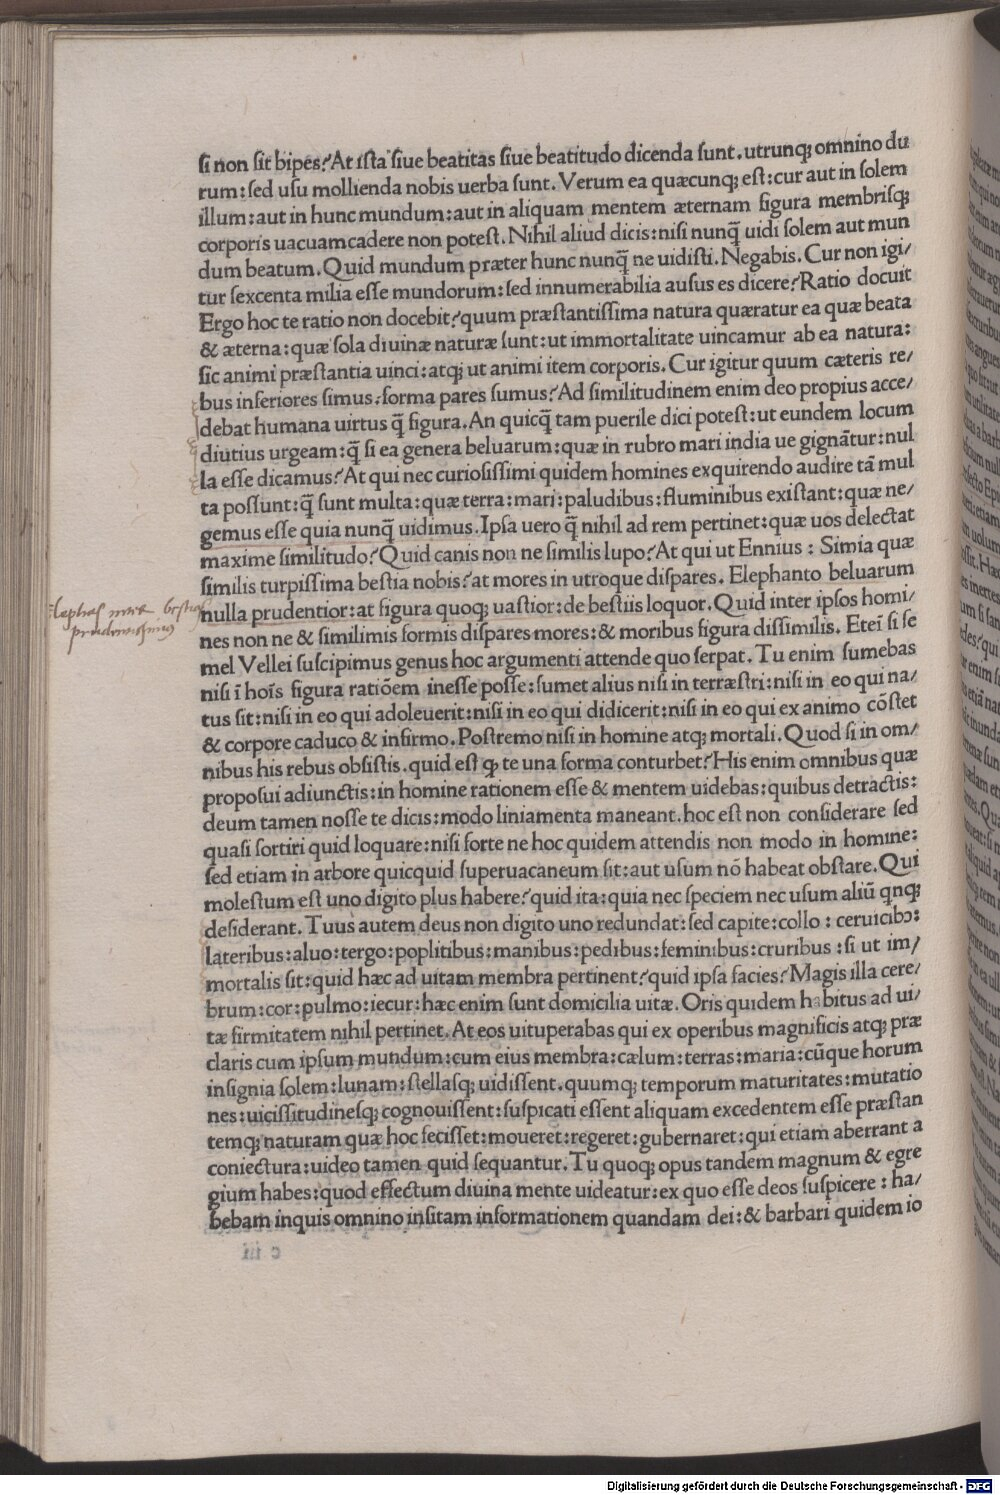 ſi non ſit bipes? At iſta ſiue beatitas ſiue beatitudo dicenda ſunt. utrunqꝫ omnino du
rum: ſed uſu mollienda nobis uerba ſunt. Verum ea quæcunqꝫ eſt: cur aut in ſolem
illum: aut in hunc mundum: aut in aliquam mentem æternam figura membriſqꝫ
corporis uacuam cadere non poteſt. Nihil aliud dicis: niſi nunq̃ uidi ſolem aut mun
dum beatum. Quid mundum præter hunc nunq̃ ne uidiſti. Negabis. Cur non igi/
tur ſexcenta milia eſſe mundorum: ſed innumerabilia auſus es dicere? Ratio docuit
Ergo hoc te ratio non docebit? quum præſtantiſſima natura quæratur ea quæ beata
& æterna: quæ ſola diuinæ naturæ ſunt: ut immortalitate uincamur ab ea natura:
ſic animi præſtantia uinci: atqꝫ ut animi item corporis. Cur igitur quum cæteris re/
bus inferiores ſimus: forma pares ſumus? Ad ſimilitudinem enim deo propius acce/
debat humana uirtus q̃ figura. An quicq̃ tam puerile dici poteſt: ut eundem locum
diutius urgeam: q̃ ſi ea genera beluarum: quæ in rubro mari india ue gignãtur: nul
la eſſe dicamus? At qui nec curioſiſſimi quidem homines exquirendo audire tã mul
ta poſſunt: q̃ ſunt multa: quæ terra: mari: paludibus: fluminibus exiſtant: quæ ne/
gemus eſſe quia nunq̃ uidimus. Ipſa uero q̃ nihil ad rem pertinet: quæ uos delectat
maxime ſimilitudo? Quid canis non ne ſimilis lupo? At qui ut Ennius : Simia quæ
ſimilis turpiſſima beſtia nobis? at mores in utroque diſpares. Elephanto beluarum
Elephas beſtia
prudentiſſimus
nulla prudentior: at figura quoqꝫ uaſtior: de beſtiis loquor. Quid inter ipſos homi/
nes non ne & ſimilimis formis diſpares mores: & moribus figura diſſimilis. Eteĩ ſi ſe
mel Vellei ſuſcipimus genus hoc argumenti attende quo ſerpat. Tu enim ſumebas
niſi ĩ hoĩs figura ratiõem ineſſe poſſe: ſumet alius niſi in terræſtri: niſi in eo qui na/
tus ſit: niſi in eo qui adoleuerit: niſi in eo qui didicerit: niſi in eo qui ex animo cõſtet
& corpore caduco & infirmo. Poſtremo niſi in homine atqꝫ mortali. Quod ſi in om/
nibus his rebus obſiſtis. quid eſt ꝙ te una forma conturbet? His enim omnibus quæ
propoſui adiunctis: in homine rationem eſſe & mentem uidebas: quibus detractis:
deum tamen noſſe te dicis: modo liniamenta maneant. hoc eſt non conſiderare ſed
quaſi ſortiri quid loquare: niſi forte ne hoc quidem attendis non modo in homine:
ſed etiam in arbore quicquid ſuperuacaneum ſit: aut uſum nõ habeat obſtare. Qui
moleſtum eſt uno digito plus habere? quid ita: quia nec ſpeciem nec uſum aliũ qnqꝫ
deſiderant. Tuus autem deus non digito uno redundat: ſed capite: collo : ceruicibꝰ:
lateribus: aluo: tergo: poplitibus: manibus: pedibus: feminibus: cruribus : ſi ut im/
mortalis ſit: quid hæc ad uitam membra pertinent? quid ipſa facies? Magis illa cere/
brum: cor: pulmo: iecur: hæc enim ſunt domicilia uitæ. Oris quidem habitus ad ui/
tæ firmitatem nihil pertinet. At eos uituperabas qui ex operibus magnificis atqꝫ præ
claris cum ipſum mundum: cum eius membra: cælum: terras: maria: cũque horum
inſignia ſolem: lunam: ſtellaſqꝫ uidiſſent. quumqꝫ temporum maturitates: mutatio
nes: uiciſſitudineſqꝫ cognouiſſent: ſuſpicati eſſent aliquam excedentem eſſe præſtan
temqꝫ naturam quæ hoc feciſſet: moueret: regeret: gubernaret: qui etiam aberrant a
coniectura: uideo tamen quid ſequantur. Tu quoqꝫ opus tandem magnum & egre
gium habes: quod effectum diuina mente uideatur: ex quo eſſe deos ſuſpicere : ha/
bebam inquis omnino inſitam informationem quandam dei: & barbari quidem io
Digitalisierung gefördert durch die Deutsche Forschungsgemeinschaft - DFG